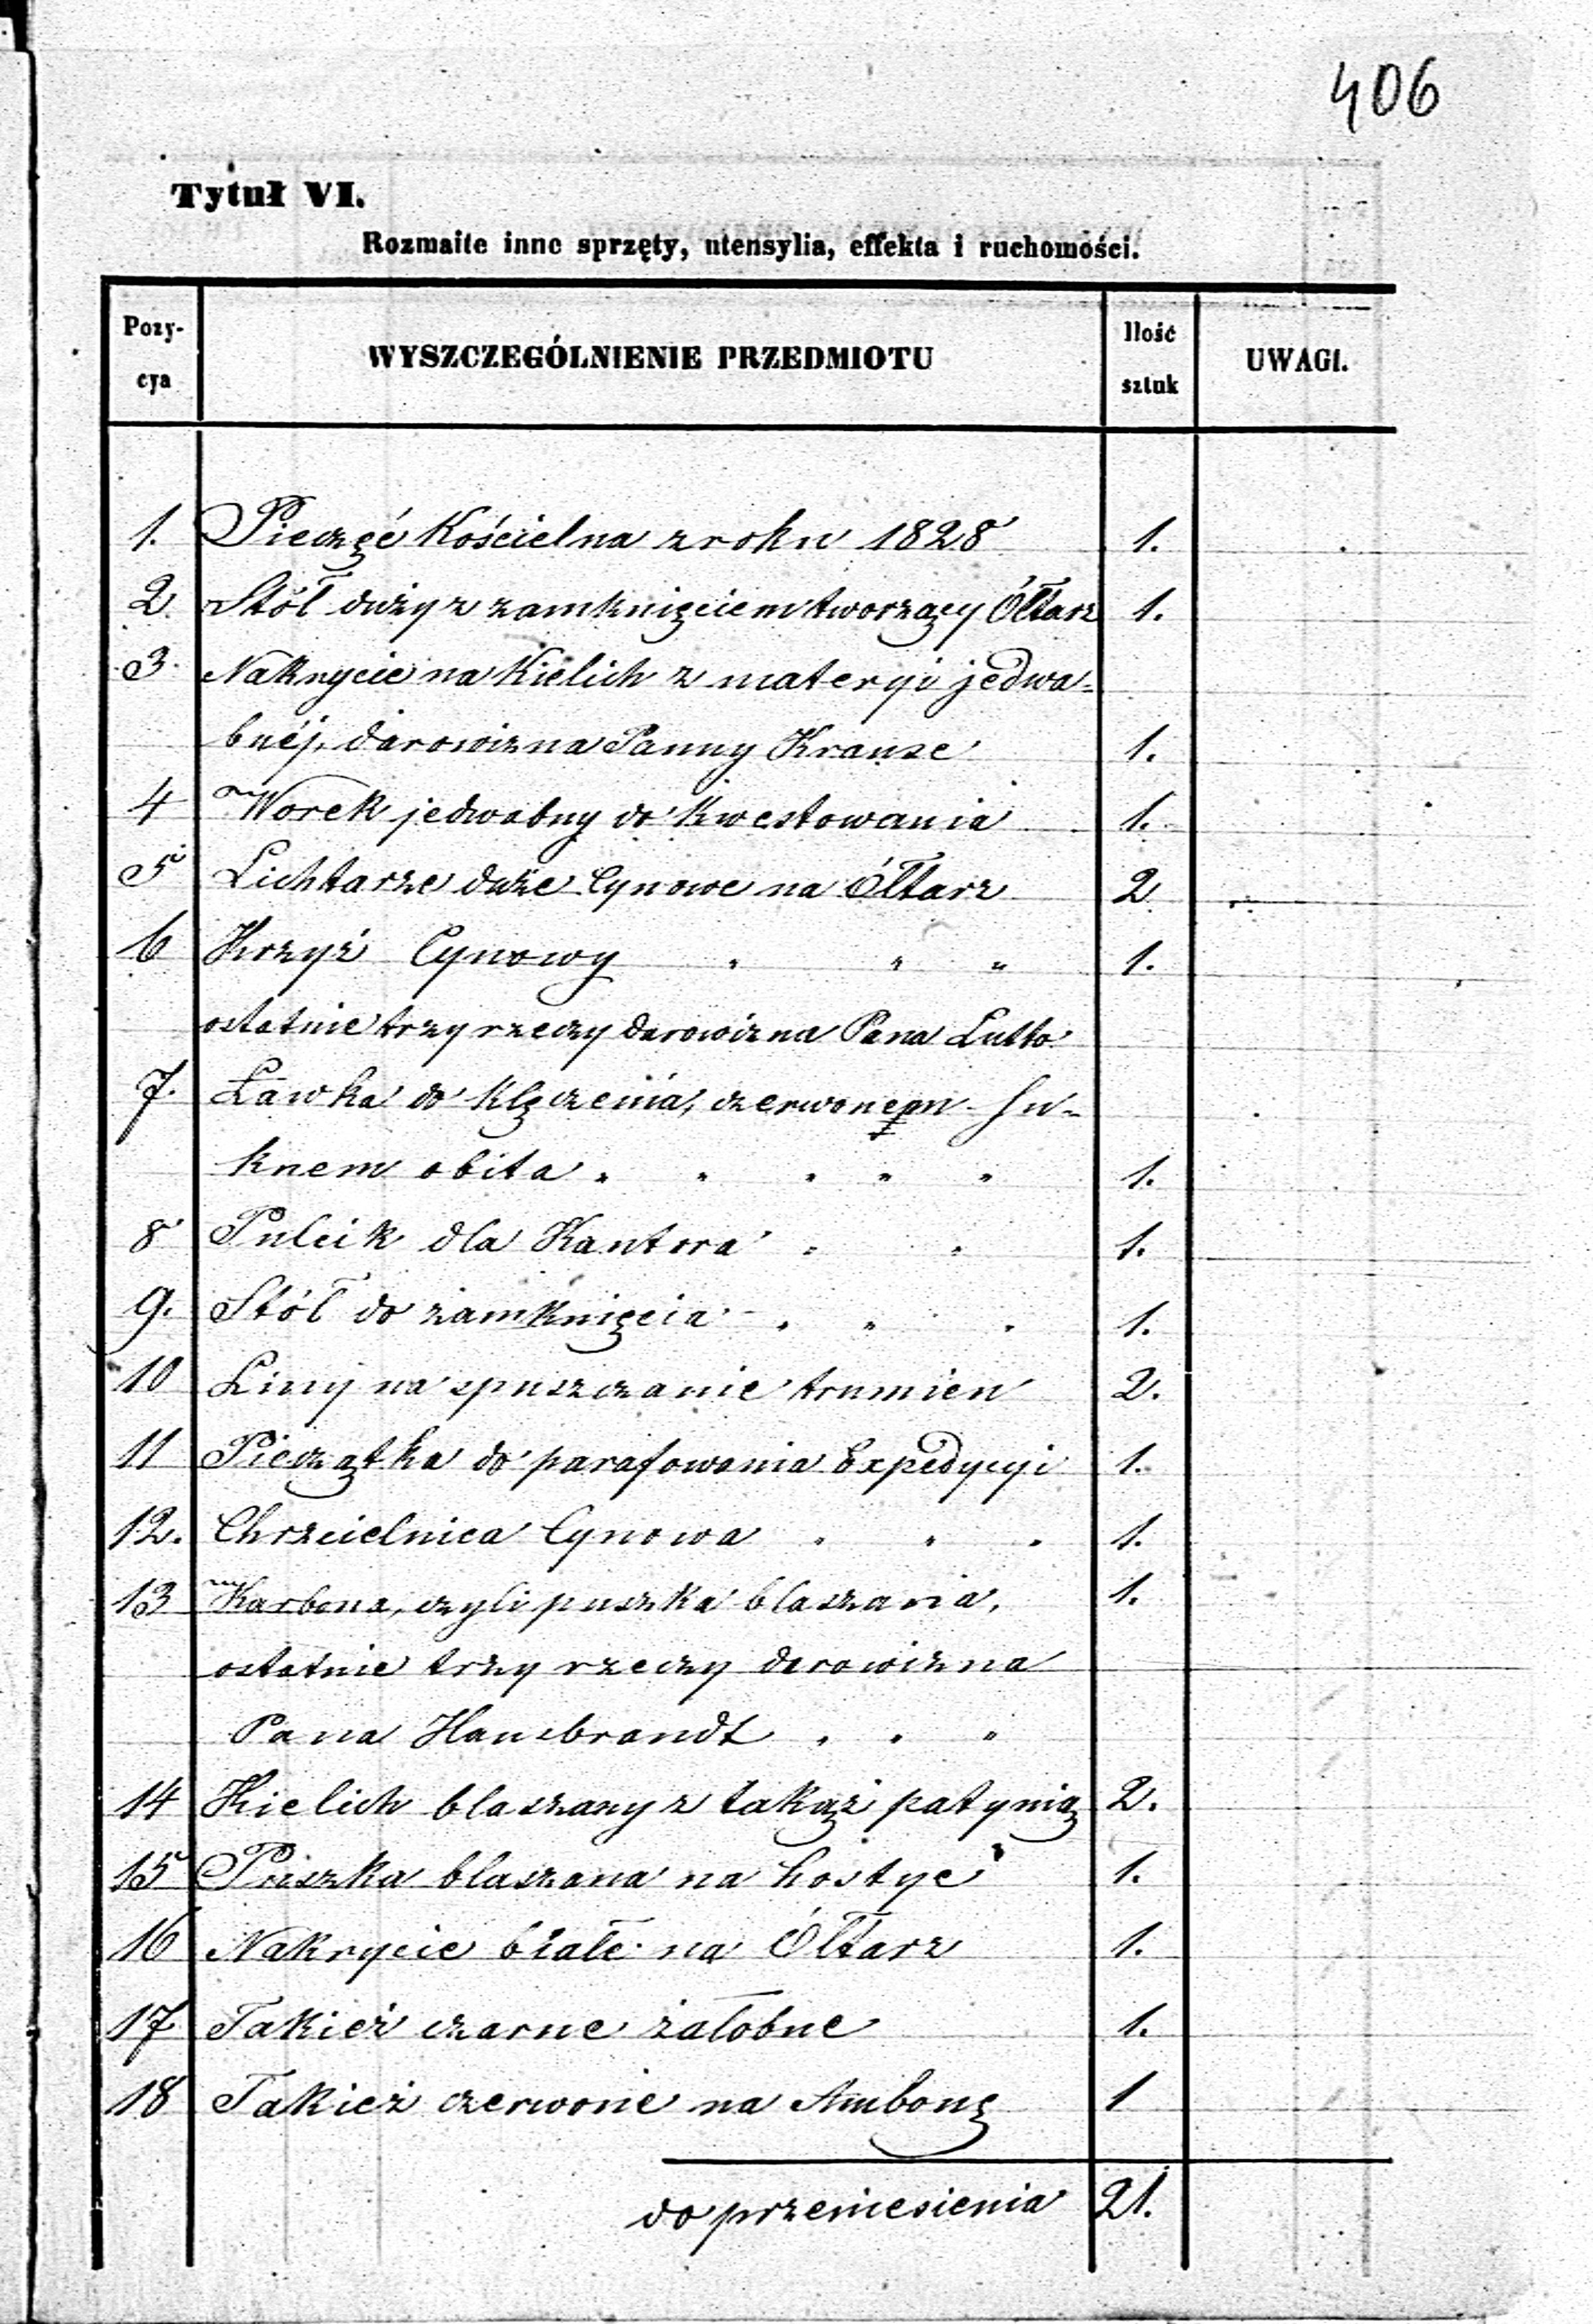 406
Tytuł VI.
Rozmaite inne sprzęty, utensylia, effekta i ruchomości.
Pozy-
cya
WYSZCZEGÓLNIENIE PRZEDMIOTU
Ilość
sztuk
UWAGI.
1. Pieczęć Kościelna z roku 1828 1.
2. Stół duży z zamknięciem tworzący Ółtarz 1.
3. Nakrycie na Kielich z materyi jedwa-
bnéj, darowizna Panny Krause 1.
4 Worek jedwabny do Kwestowania 1.
5 Lichtarze duże Cynowe na Ółtarz 2
6 Krzyż Cynowy " " " 1.
ostatnie trzy rzeczy darowizna Pana Lutto
7. Ławka do klęczenia, czerwonem Su-
knem obita " " " " " 1.
8 Pulcik dla Kantora " " 1.
9. Stół do zamknięcia " " " 1.
10 Liny na spuszczanie trumien 2.
11 Pieczątka do parafowania Expedycyi 1.
12. Chrzcielnica Cynowa " " " 1.
13 Karbona, czyli puszka blaszana, 1.
ostatnie trzy rzeczy darowizna
Pana Hansbrandt " " "
14 Kielich blaszany z takąż patynią 2.
15 Puszka blaszana na hostye 1.
16 Nakrycie białe na Ółtarz 1.
17 Takież czarne żałobne 1.
18 Takież czerwone na Ambonę 1
do przeniesienia 21.